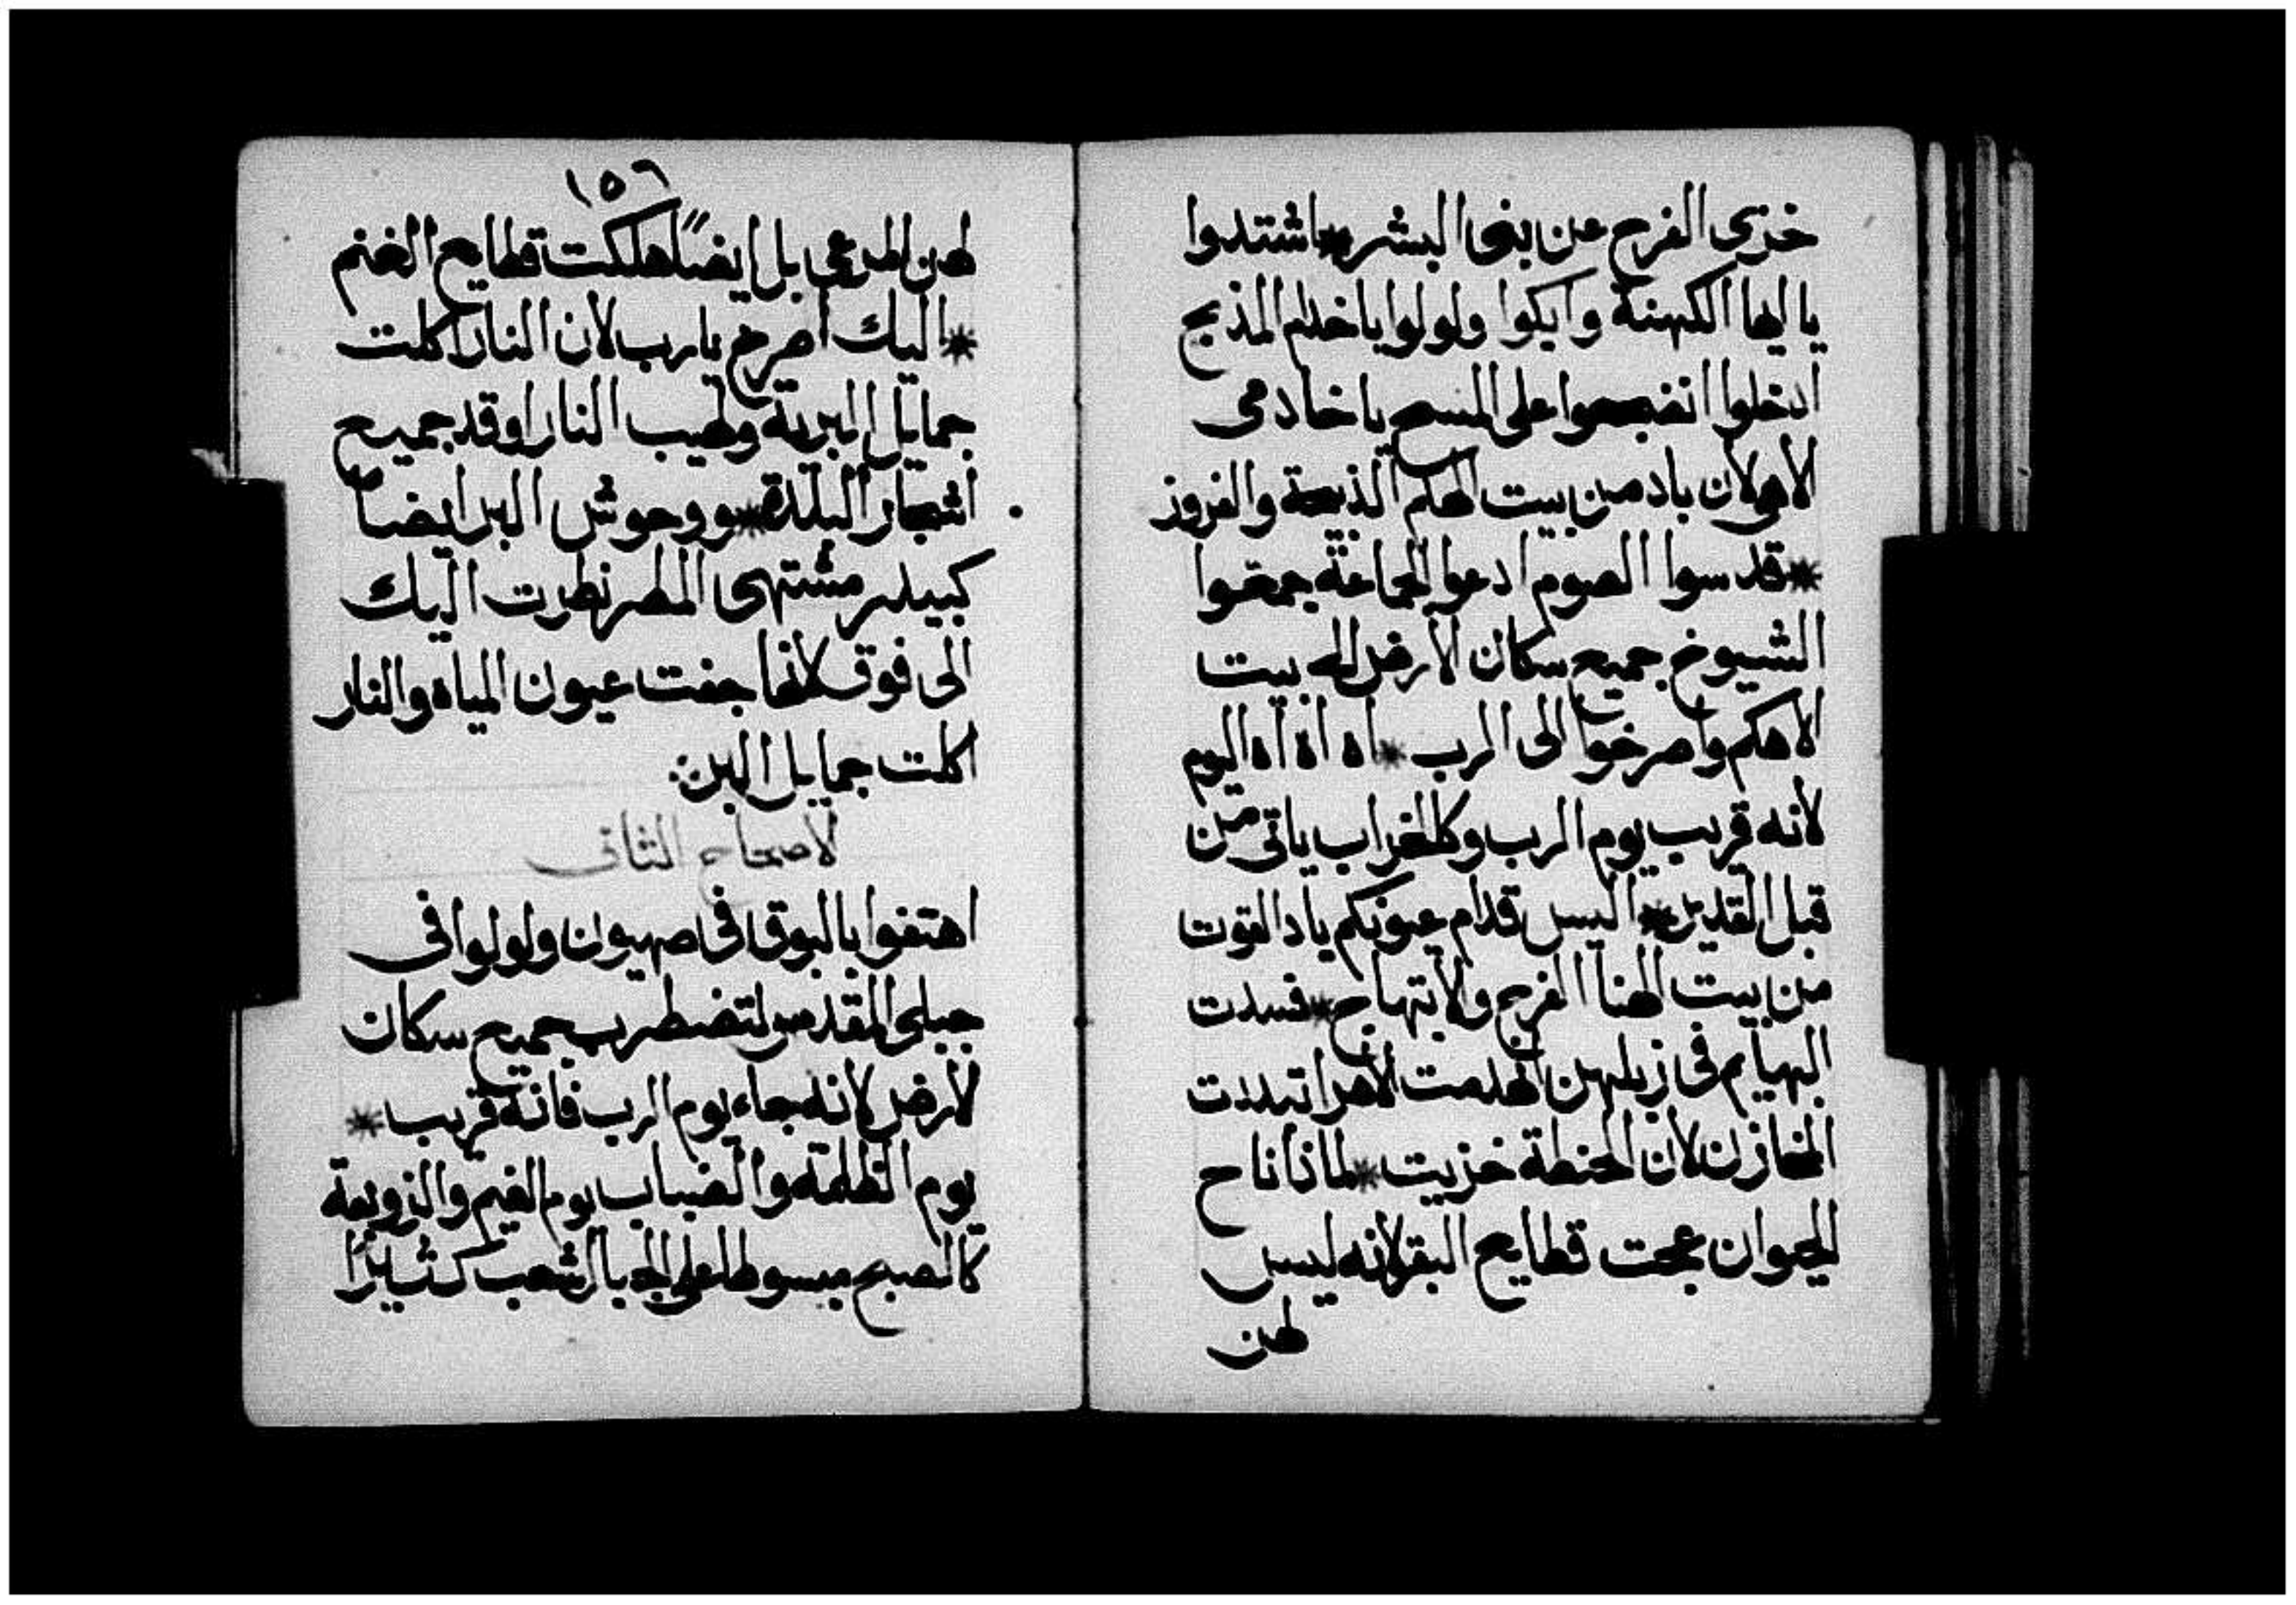 خزى الفرح عن بنى البشر * اشتدوا
يا ايها الكهنة وابكوا ولولوا يا خدام المذبح
ادخلوا انضجعوا على المسح يا خادمى
الاهى لان باد من بيت الهكم الذبيحة والفروز
* قدسوا الصوم ادعوا الجماعة جمعوا
الشيوخ جميع سكان الارض اله بيت
الاهكم واصرخوا الى الرب * اه اه اه اليوم
لانه قريب يوم الرب وكالخراب ياتى من
قبل القدير * اليس قدام عيونكم باد القوت
من بيت الهنا الفرح والابتهاج * فسدت
البهايم فى زبلهن انهدمت الاهرا تبددت
المخازن لان الحنطة خزيت * لماذا ناح
الحيوان عجت قطايع البقر لانه ليس
لهن
١٥٦
لهن المرعى بل ايضاً هلكت قطايع الغنم
* اليك اصرخ يا رب لان النار اكلت
جمايل البرية ولهيب النار اوقد جميع
اشجار البلدة * ووحوش البر ايضاً
كبيدر مشتهى المطر نظرت اليك
الى فوق لانها جفت عيون المياه والنار
اكلت جمايل البر
الاصحاح الثانى
اهتفوا بالبوق فى صهيون ولولوا فى
جبلى المقدس لتضطرب جميع سكان
الارض لانه جاء يوم الرب فانه قريب *
يوم الظلمة والضباب يوم الغيم والزوبعة
كالصبح مبسوطا على الجبال شعب كثيرًا